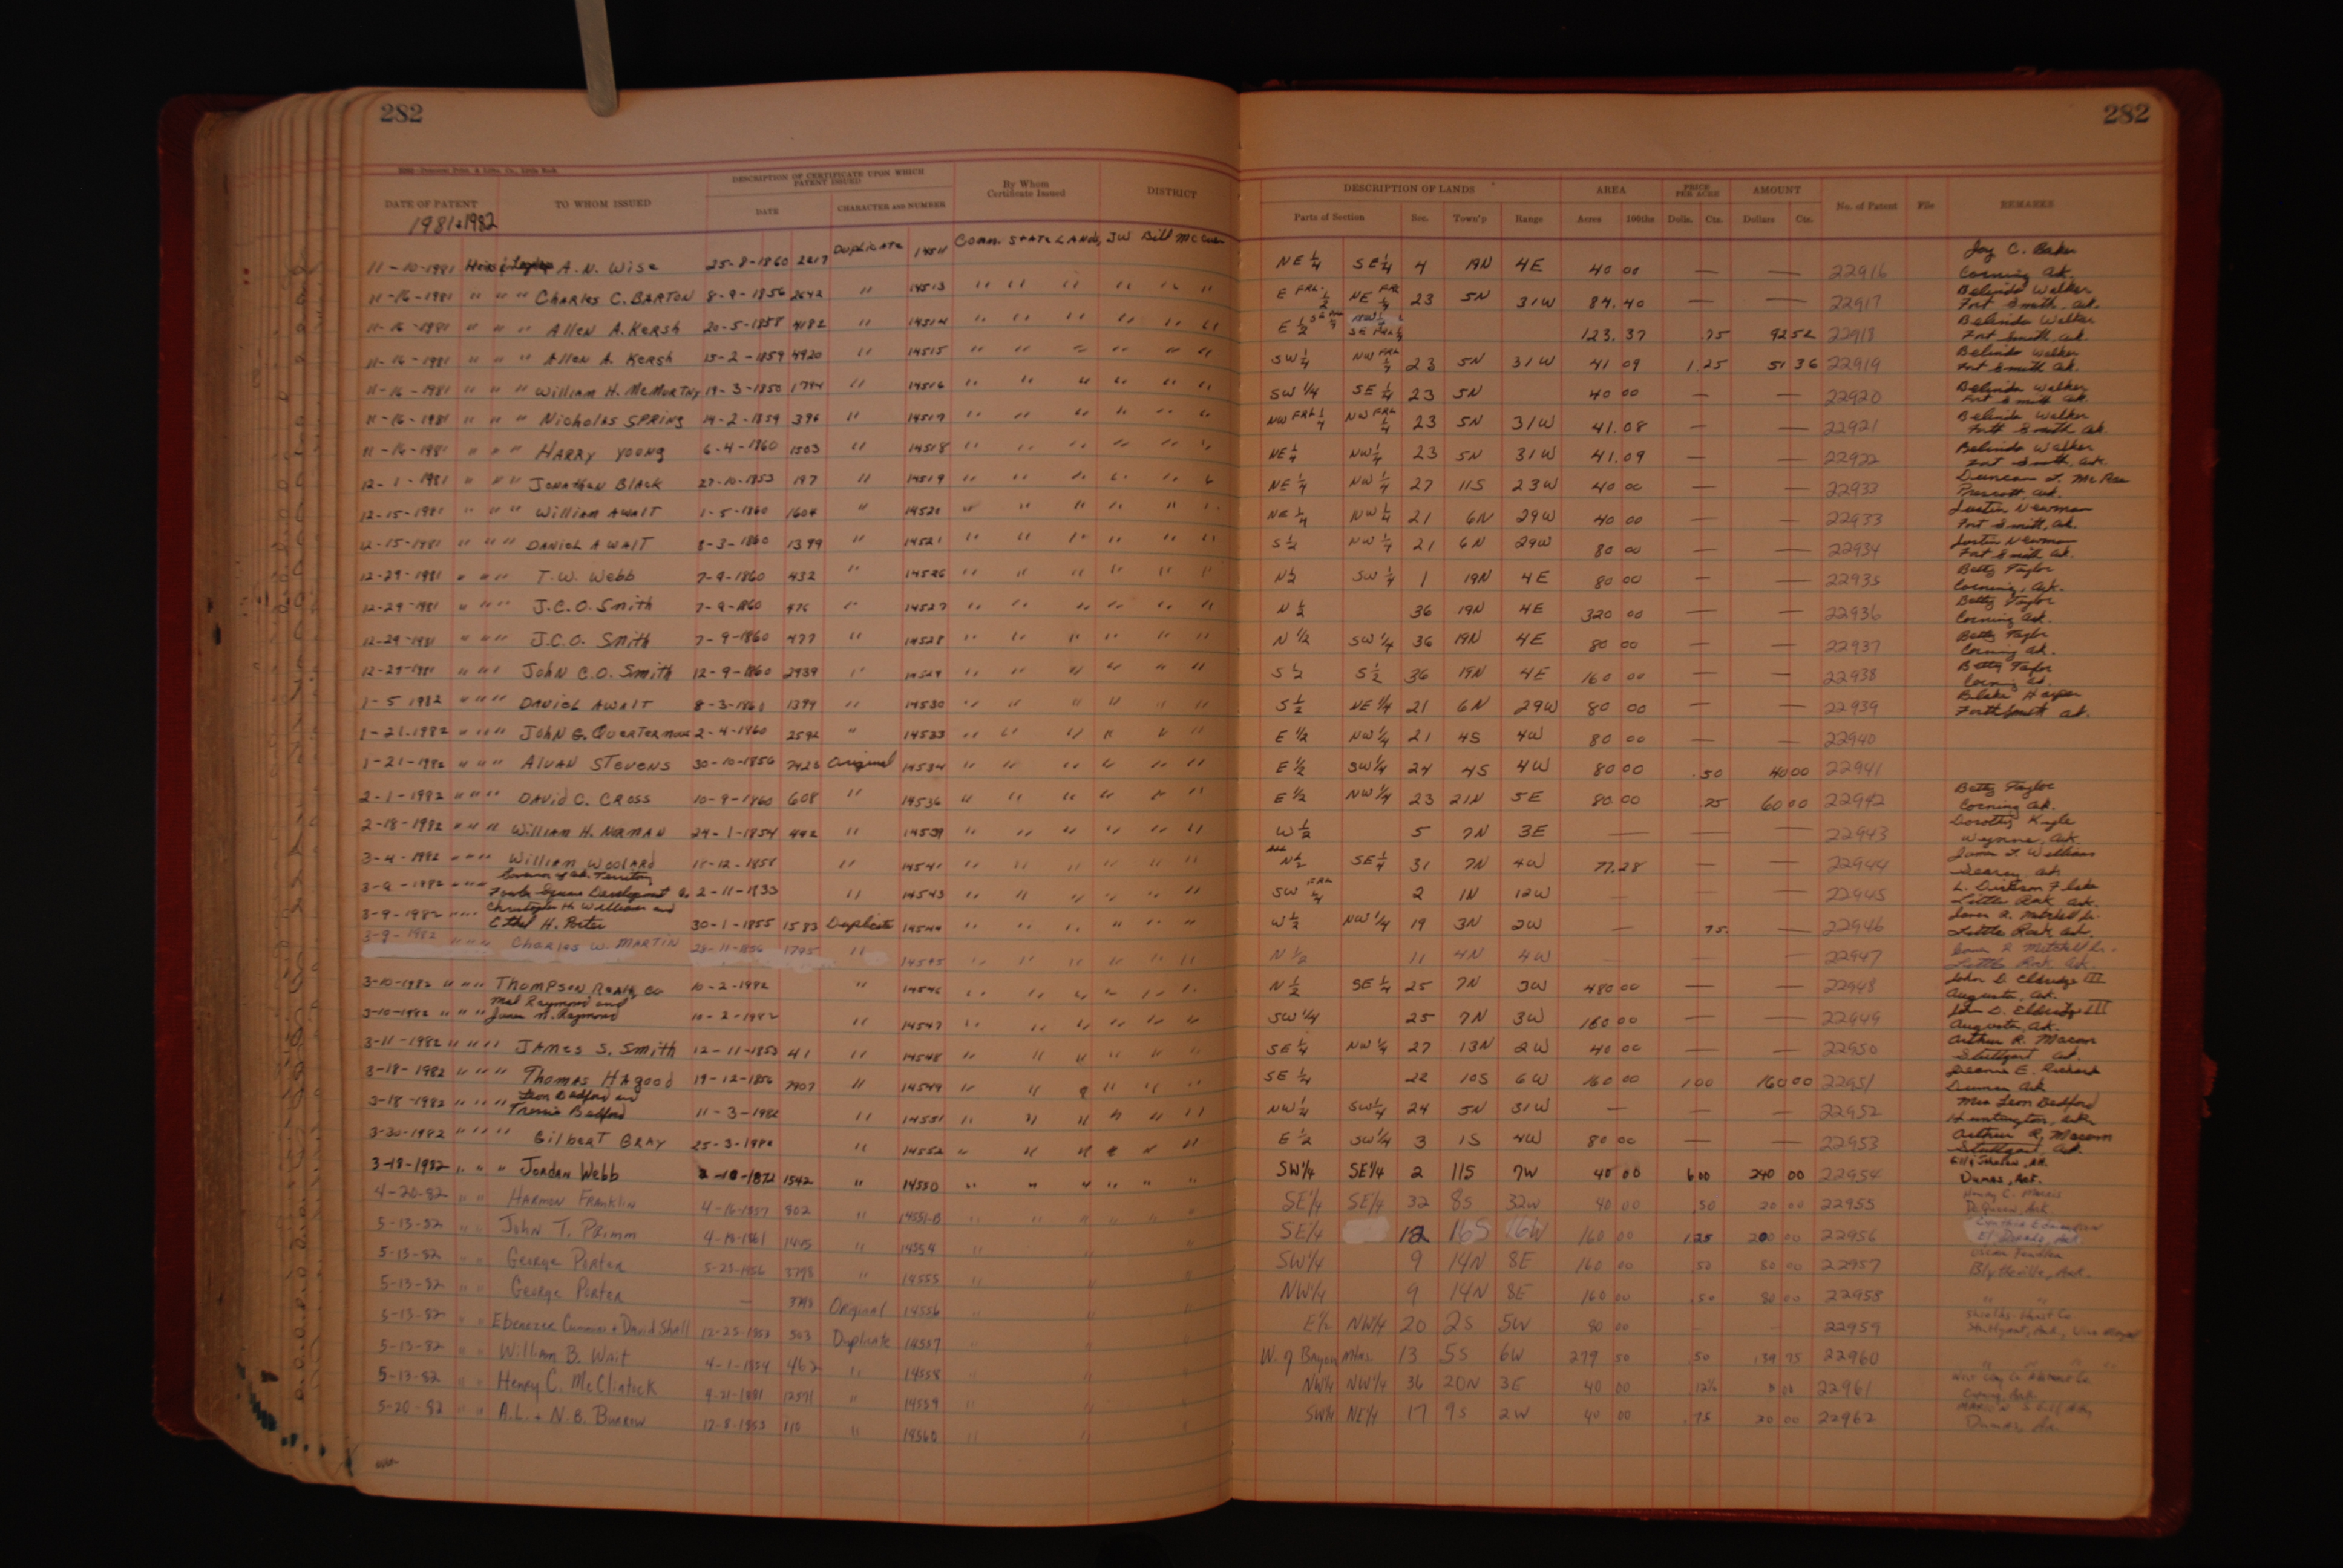 282
282
DATE OF PATENT TO WHOM ISSUED DESCRIPTION OF CERTIFICATE UPON WHICH PATENT ISSUED DATE CHARACTER AND NUMBER By Whom Certificate Issued DISTRICT DESCRIPTION OF LANDS Parts of Section Sec. Town'p Range AREA Acres 100ths PRICE PER ACRE Dolls. Cts. AMOUNT Dollars Cts. No. of Patent File REMARKS
1981+1982
11-10-1981 A. N. Wise 25-8-1860 2217 Duplicate 14511 Comm. State Lands, JW Bill NE 1/4 SE 1/4 4 19N 4E 40 00 — — 22916 Joy C. Baker Corning Ak.
11-16-1981 " " " Charles C. BARTON 8-9-1856 2642 " 14513 " " " " " " E FRL 1/2 NE FRL 1/4 23 5N 31W 84.40 — — 22917 Belinda Walker Fort Smith, Ak.
11-16-1981 " " " Allen A. Kersh 20-5-1858 4182 " 14514 " " " " " " E 1/2 123.37 .75 92 52 22918 Belinda Walker Fort Smith, Ak.
11-16-1981 " " " Allen A. Kersh 15-2-1859 4920 " 14515 " " " " " " SW 1/4 NW FRL 1/4 23 5N 31W 41 09 1.25 51 36 22919 Belinda Walker Fort Smith Ak.
11-16-1981 " " " William H. McMurtry 19-3-1850 1794 " 14516 " " " " " " SW 1/4 SE 1/4 23 5N 40 00 — — 22920 Belinda Walker Fort Smith Ak.
11-16-1981 " " " Nicholas SPRING 14-2-1859 396 " 14517 " " " " " " NW FRL 1/4 NW FRL 1/4 23 5N 31W 41.08 — — 22921 Belinda Walker Fort Smith Ak.
11-16-1981 " " " HARRY YOUNG 6-4-1860 1503 " 14518 " " " " " " NE 1/4 NW 1/4 23 5N 31W 41.09 — — 22922 Belinda Walker Fort Smith, Ak.
12-1-1981 " " " Jonathan Black 27-10-1853 197 " 14519 " " " " " " NE 1/4 NW 1/4 27 11S 23W 40 00 — — 22933 Duncan L. McRae Prescott, Ak.
12-15-1981 " " " William AWALT 1-5-1860 1604 " 14520 " " " " " " NE 1/4 NW 1/4 21 6N 29W 40 00 — — 22933 Justin Newman Fort Smith, Ak.
12-15-1981 " " " DANIEL AWALT 8-3-1860 1399 " 14521 " " " " " " S 1/2 NW 1/4 21 6N 29W 80 00 — — 22934 Justin Newman Fort Smith Ak.
12-29-1981 " " " T.W. Webb 7-9-1860 432 " 14526 " " " " " " N 1/2 SW 1/4 1 19N 4E 80 00 — — 22935 Betty Taylor Corning, Ak.
12-29-1981 " " " J.C.O. Smith 7-9-1860 476 " 14527 " " " " " " N 1/2 36 19N 4E 320 00 — — 22936 Betty Taylor Corning Ak.
12-29-1981 " " " J.C.O. Smith 7-9-1860 477 " 14528 " " " " " " N 1/2 SW 1/4 36 19N 4E 80 00 — — 22937 Betty Taylor Corning Ak.
12-29-1981 " " " John C.O. Smith 12-9-1860 2939 " 14529 " " " " " " S 1/2 S 1/2 36 19N 4E 160 00 — — 22938 Betty Taylor Corning Ak.
1-5 1982 " " " DANIEL AWALT 1399 " 14530 " " " " " " S 1/2 NE 1/4 21 6N 29W 80 00 — — 22939 Blake Harper Fort Smith Ak.
1-21-1982 " " " John G. Quertermous 2-4-1860 2592 " 14533 " " " " " " E 1/2 NW 1/4 21 4S 4W 80 00 — — 22940
1-21-1982 " " " Alvan STEVENS 30-10-1856 7423 Original 14534 " " " " " " E 1/2 SW 1/4 24 4S 4W 80 00 .50 40 00 22941
2-1-1982 " " " DAVID C. CROSS 10-9-1860 608 " 14536 " " " " " " E 1/2 NW 1/4 23 21N 5E 80 00 .75 60 00 22942 Betty Taylor Corning Ak.
2-18-1982 " " " William H. NORMAN 24-1-1854 442 " 14539 " " " " " " W 1/2 5 7N 3E — — — 22943 Dorothy Kyle Wynne, Ak.
3-4-1982 " " " William Woolard 18-12-1858 " 14541 " " " " " " N 1/2 SE 1/4 31 7N 4W 77.28 — — 22944 Searcy Ak
3-9-1982 " " " Governor of Ak. Territory 2-11-1833 " 14543 " " " " " " SW FRL 1/4 2 1N 12W — — — 22945 L. Dickson Flake Little Rock Ak.
3-9-1982 " " " Christopher H. Williams and Ethel H. Porter 30-1-1855 1583 Duplicate 14544 " " " " " " W 1/2 NW 1/4 19 3N 2W — .75 — 22946 James R. Mitchell Jr. Little Rock Ak.
3-9-1982 " " " Charles W. MARTIN 28-11-1856 1795 " 14545 " " " " " " N 1/2 11 4N 4W — — — 22947 James R. Mitchell Jr. Little Rock Ak.
3-10-1982 " " " Thompson Realty Co 10-2-1982 " 14546 " " " " " " N 1/2 SE 1/4 25 7N 3W 480 00 — — 22948 John D. Eldridge III Augusta, Ak.
3-10-1982 " " " Mal Raymond and James N. Raymond 10-2-1982 " 14547 " " " " " " SW 1/4 25 7N 3W 160 00 — — 22949 John D. Eldridge III Augusta, Ak.
3-11-1982 " " " JAMES S. Smith 12-11-1853 41 " 14548 " " " " " " SE 1/4 NW 1/4 27 13N 2W 40 00 — — 22950 Arthur R. Macom Stuttgart Ak.
3-18-1982 " " " Thomas Hagood 19-12-1856 7907 " 14549 " " " " " " SE 1/4 22 10S 6W 160 00 1 00 160 00 22951 Jeannie E. Richard Dumas Ak
3-18-1982 " " " Leon Bedford and Bedford 11-3-1982 " 14551 " " " " " " NW 1/4 SW 1/4 24 5N 31W — — — 22952 Mrs Leon Bedford Huntington, Ark
3-30-1982 " " " Gilbert GRAY 25-3-1982 " 14552 " " " " " " E 1/2 SW 1/4 3 1S 4W 80 00 — — 22953 Arthur R. Macom Stuttgart Ak.
3-18-1982 " " " Jordan Webb 1542 " 14550 " " " " " " SW 1/4 SE 1/4 2 11S 7W 40 00 6 00 240 00 22954 Dumas, Ark.
4-20-82 " " HARMON FRANKLIN 4-16-1857 802 " 14551-B " " " " " " SE 1/4 SE 1/4 32 8S 32W 40 00 .50 20 00 22955 DeQueen, Ark
5-13-82 " " John T. Primm 4-18-1861 1445 " 14554 " " SE 1/4 12 16S 16W 160 00 1.25 200 00 22956 Cynthia Edmondson El Dorado, Ark
5-13-82 " " George Porter 5-23-1856 3798 " 14555 " " SW 1/4 9 14N 8E 160 00 .50 80 00 22957 Oscar Fendler Blytheville, Ark.
5-13-82 " " George Porter — 3798 Original 14556 " " NW 1/4 9 14N 8E 160 00 .50 80 00 22958 " "
5-13-82 " " Ebenezer Cummins + David Shall 12-23-1853 503 Duplicate 14557 " " E 1/2 NW 1/4 20 2S 5W 80 00 22959 Stuttgart, Ark.
5-13-82 " " William B. Wait 4-1-1854 462 " 14558 " " W. of Bayou 13 5S 6W 279 50 .50 139 75 22960 " " " "
5-13-82 " " Henry C. McClintock 9-21-1881 12571 " 14559 " " NW 1/4 NW 1/4 36 20N 3E 40 00 .12½ 22961 Corning, Ark.
5-20-82 " " A.L. + N.B. Burrow 12-8-1853 110 " 14560 " " SW 1/4 NE 1/4 17 9S 2W 40 00 .75 30 00 22962 Dumas, Ar.